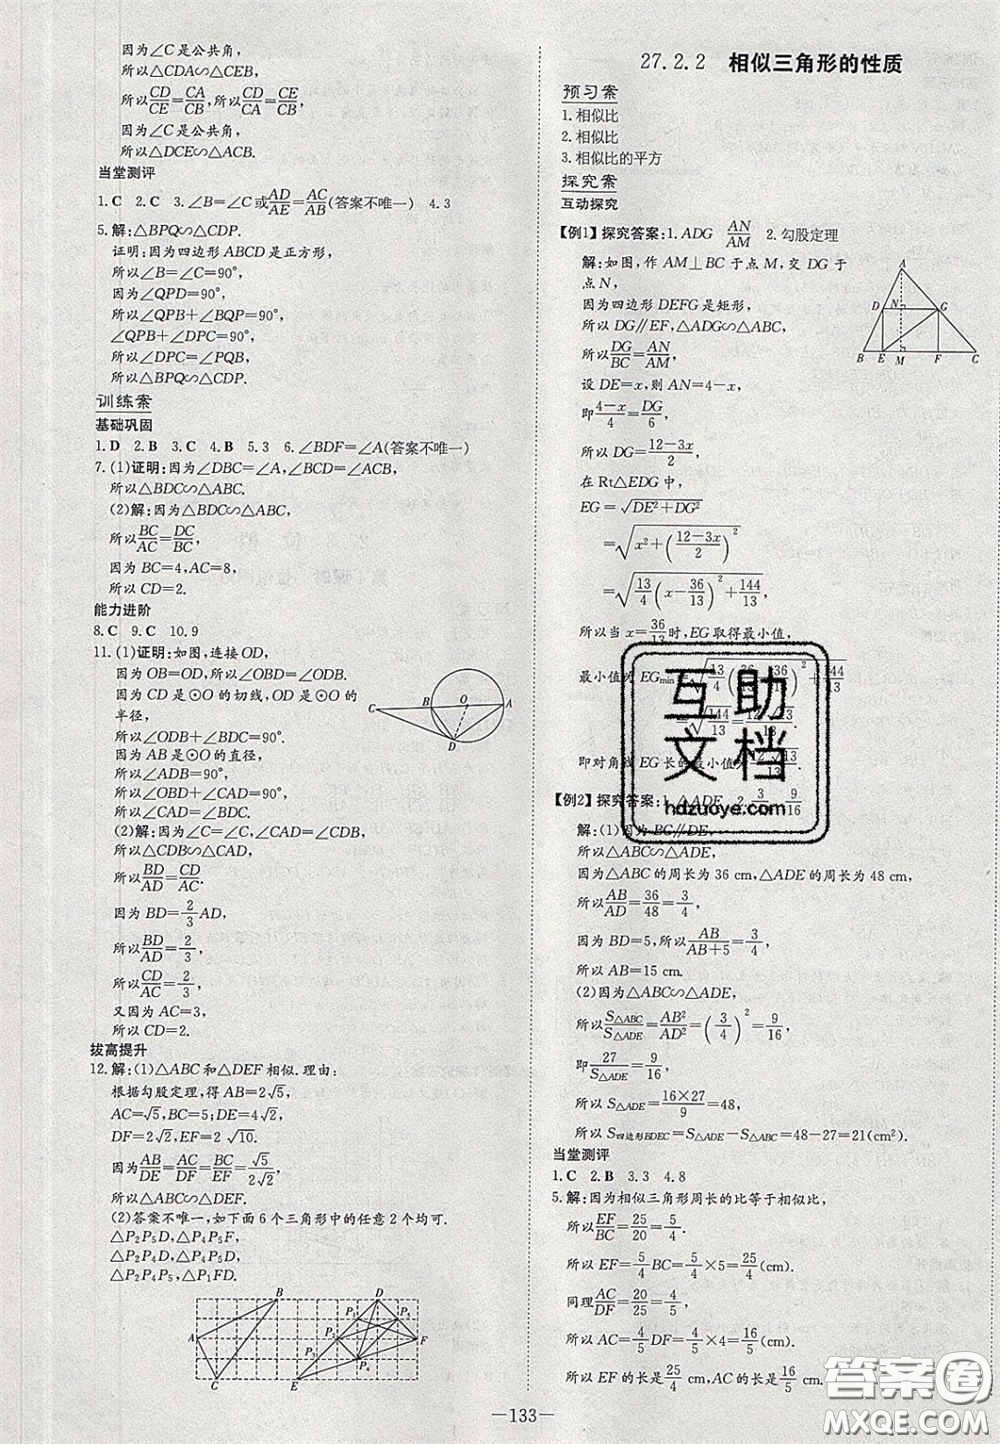 因为∠C是公共角,
所以△CDA∽△CEB,
所以CD/CE=CA/CB,所以CD/CA=CE/CB,
因为∠C是公共角,
所以△DCE∽△ACB.
当堂测评
1.C 2.C 3.∠B=∠C或AD/AE=AC/AB(答案不唯一) 4.3
5.解:△BPQ∽△CDP.
证明:因为四边形ABCD是正方形,
所以∠B=∠C=90°,
因为∠QPD=90°,
所以∠QPB+∠BQP=90°,
∠QPB+∠DPC=90°,
所以∠DPC=∠PQB,
所以△BPQ∽△CDP.
训练案
基础巩固
1.D 2.B 3.C 4.B 5.3 6.∠BDF=∠A(答案不唯一)
7.(1)证明:因为∠DBC=∠A,∠BCD=∠ACB,
所以△BDC∽△ABC.
(2)解:因为△BDC∽△ABC,
所以BC/AC=DC/BC,
因为BC=4,AC=8,
所以CD=2.
能力进阶
8.C 9.C 10.9
11.(1)证明:如图,连接OD,
因为OB=OD,所以∠OBD=∠ODB.
因为CD是⊙O的切线,OD是⊙O的
半径,
所以∠ODB+∠BDC=90°.
因为AB是⊙O的直径,
所以∠ADB=90°,
所以∠OBD+∠CAD=90°,
所以∠CAD=∠BDC.
(2)解:因为∠C=∠C,∠CAD=∠CDB,
所以△CDB∽△CAD,
所以BD/AD=CD/AC.
因为BD=2/3AD,
所以BD/AD=2/3,
所以CD/AC=2/3,
又因为AC=3,
所以CD=2.
C B O A D
拔高提升
12.解:(1)△ABC和△DEF相似.理由:
根据勾股定理,得AB=2√5,
AC=√5,BC=5;DE=4√2,
DF=2√2,EF=2√10.
因为AB/DE=AC/DF=BC/EF=√5/2√2,
所以△ABC∽△DEF.
(2)答案不唯一,如下面6个三角形中的任意2个均可.
△P₂P₅D,△P₄P₅F,
△P₂P₄D,△P₄P₅D,
△P₂P₄P₅,△P₁FD.
A B C D E F P₁ P₂ P₃ P₄ P₅
27.2.2 相似三角形的性质
预习案
1.相似比
2.相似比
3.相似比的平方
探究案
互动探究
【例1】探究答案:1.ADG AN/AM 2.勾股定理
解:如图,作AM⊥BC于点M,交DG于
点N,
因为四边形DEFG是矩形,
所以DG∥EF,△ADG∽△ABC,
所以DG/BC=AN/AM,
设DE=x,则AN=4-x,
即(4-x)/4=DG/6,
所以DG=(12-3x)/2,
在Rt△EDG中,
EG=√(DE²+DG²)
=√(x²+((12-3x)/2)²)
=√(13/4(x-36/13)²+144/13),
所以当x=36/13时,EG取得最小值,
最小值为EGmin=√(13/4(36/13-36/13)²+144/13)
=√(144/13)=12√13/13.
即对角线EG长的最小值为12√13/13.
A D N G B E M F C
【例2】探究答案:1.△ADE 2.3/4 9/16
解:(1)因为BC∥DE,
所以△ABC∽△ADE,
因为△ABC的周长为36 cm,△ADE的周长为48 cm,
所以AB/AD=36/48=3/4,
因为BD=5,所以AB/(AB+5)=3/4,
所以AB=15 cm.
(2)因为△ABC∽△ADE,
所以S△ABC/S△ADE=AB²/AD²=(3/4)²=9/16,
即27/S△ADE=9/16,
所以S△ADE=16×27/9=48,
所以S四边形BDEC=S△ADE-S△ABC=48-27=21(cm²).
当堂测评
1.C 2.B 3.3 4.8
5.解:因为相似三角形周长的比等于相似比,
所以EF/BC=25/20=5/4,
所以EF=5/4BC=5/4×5=25/4(cm).
同理AC/DF=20/25=4/5,
所以AC=4/5DF=4/5×4=16/5(cm),
所以EF的长是25/4 cm,AC的长是16/5 cm.
互助
文档
hdzuoye.com
—133—
答案圈
MXQE.COM